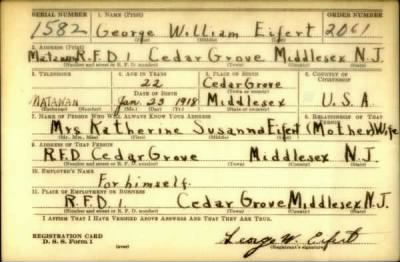 SERIAL NUMBER 1. NAME (Print) ORDER NUMBER
1582 George William Eifert 2061
(First) (Middle) (Last)
2. ADDRESS (Print)
Matawan R.F.D. 1 Cedar Grove Middlesex N.J.
(Number and street or R. F. D. number) (Town) (County) (State)
3. TELEPHONE 4. AGE IN YEARS 5. PLACE OF BIRTH 6. COUNTRY OF CITIZENSHIP
22 Cedar Grove
DATE OF BIRTH
MATAWAN Jan. 23 1918 Middlesex U.S.A.
(Mo.) (Day) (Yr.)
7. NAME OF PERSON WHO WILL ALWAYS KNOW YOUR ADDRESS 8. RELATIONSHIP OF THAT PERSON
Mrs Katherine Susanna Eifert (Mother) Wife
(Mr., Mrs., Miss) (First) (Middle) (Last)
9. ADDRESS OF THAT PERSON
R.F.D. Cedar Grove Middlesex N.J.
(Number and street or R. F. D. number) (Town) (County) (State)
10. EMPLOYER'S NAME
For himself.
11. PLACE OF EMPLOYMENT OR BUSINESS
R.F.D. 1. Cedar Grove Middlesex N.J.
(Number and street or R. F. D. number) (Town) (County) (State)
I AFFIRM THAT I HAVE VERIFIED ABOVE ANSWERS AND THAT THEY ARE TRUE.
REGISTRATION CARD
D. S. S. Form 1 (over) George W. Eifert
(Registrant's signature)